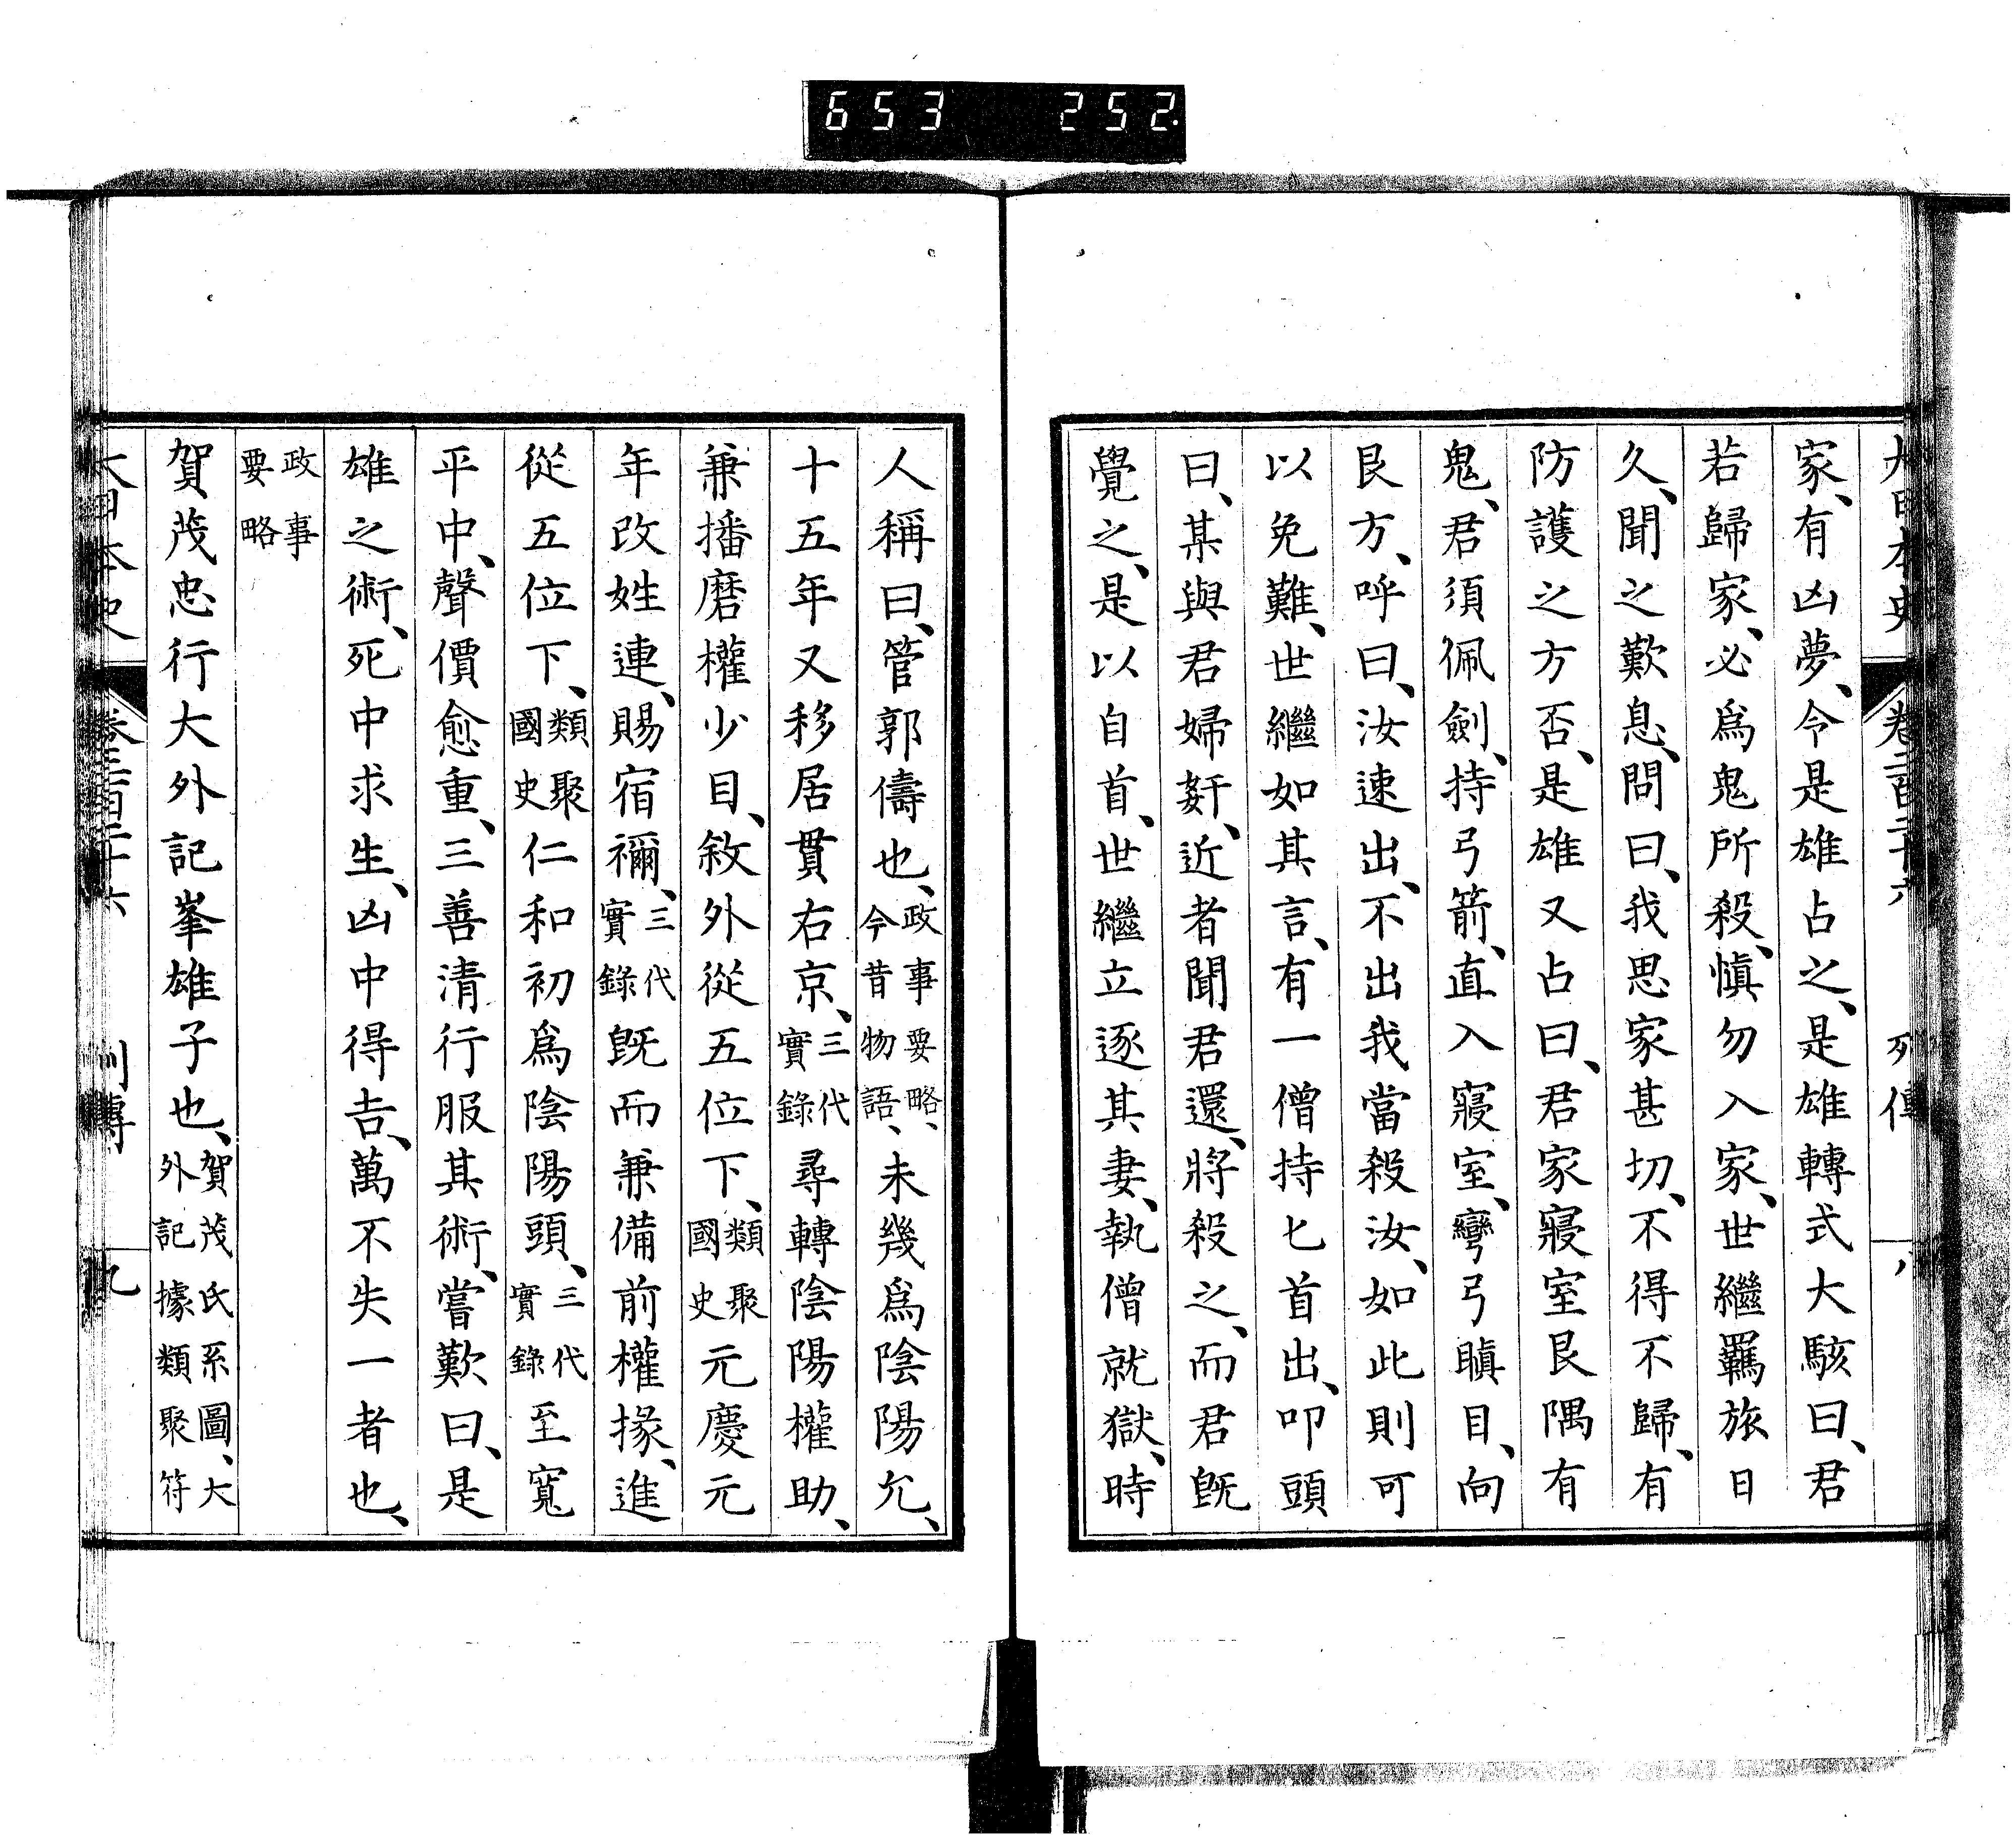 653 252.
大日本史 卷二百二十六 列傳 八
家、有凶夢、令是雄占之、是雄轉式大駭曰、君
若歸家、必爲鬼所殺、愼勿入家、世繼羈旅日
久、聞之歎息、問曰、我思家甚切、不得不歸、有
防護之方否、是雄又占曰、君家寢室艮隅有
鬼、君須佩劍、持弓箭、直入寢室、彎弓瞋目、向
艮方、呼曰、汝速出、不出我當殺汝、如此則可
以免難、世繼如其言、有一僧持匕首出、叩頭
曰、某與君婦姧、近者聞君還、將殺之、而君旣
覺之、是以自首、世繼立逐其妻、執僧就獄、時
人稱曰、管郭儔也、政事要略、今昔物語、未幾爲陰陽允、
十五年又移居貫右京、三代實錄尋轉陰陽權助、
兼播磨權少目、敘外從五位下、類聚國史元慶元
年改姓連、賜宿禰、三代實錄旣而兼備前權掾、進
從五位下、類聚國史仁和初爲陰陽頭、三代實錄至寬
平中、聲價愈重、三善清行服其術、嘗歎曰、是
雄之術、死中求生、凶中得吉、萬不失一者也、
政事要略
賀茂忠行大外記峯雄子也、賀茂氏系圖、大外記據類聚符
大日本史 卷二百二十六 列傳 九